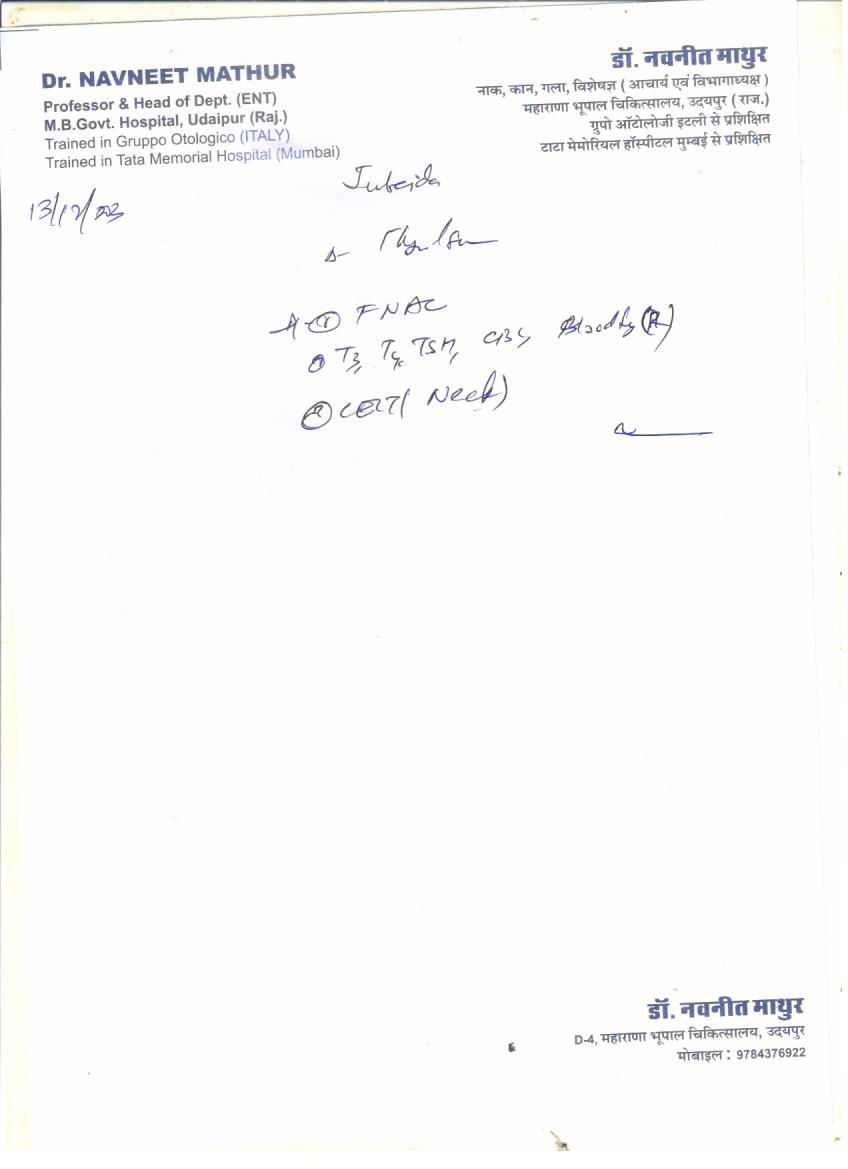 Dr. NAVNEET MATHUR
Professor & Head of Dept. (ENT)
M.B.Govt. Hospital, Udaipur (Raj.)
Trained in Gruppo Otologico (ITALY)
Trained in Tata Memorial Hospital (Mumbai)
डॉ. नवनीत माथुर
नाक, कान, गला, विशेषज्ञ ( आचार्य एवं विभागाध्यक्ष )
महाराणा भूपाल चिकित्सालय, उदयपुर ( राज.)
ग्रुपो ऑटोलोजी इटली से प्रशिक्षित
टाटा मेमोरियल हॉस्पीटल मुम्बई से प्रशिक्षित
13/12/23
FNAC
T3, T4, TSH,
(Neck)
डॉ. नवनीत माथुर
D-4, महाराणा भूपाल चिकित्सालय, उदयपुर
मोबाइल : 9784376922